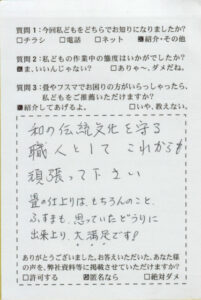 質問1：今回私どもをどちらでお知りになりましたか？
□チラシ　□電話　□ネット　■紹介・その他
質問2：私どもの作業中の態度はいかがでしたか？
■ま、いいんじゃない？　□ありゃ〜、ダメだね。
質問3：畳やフスマでお困りの方がいらっしゃったら、
私どもをご推薦いただけますか？
■紹介してあげるよ。　□いや、教えない。
和の伝統文化を守る
職人として これからも
頑張って下さい
畳の仕上りは、もちろんのこと、
ふすまも、思っていたとうりに
出来上り、大満足です!
ありがとうございました。お答えいただいた、あなた様
の声を、弊社資料等に掲載させていただけますか？
□許可する　■匿名なら　□絶対ダメ